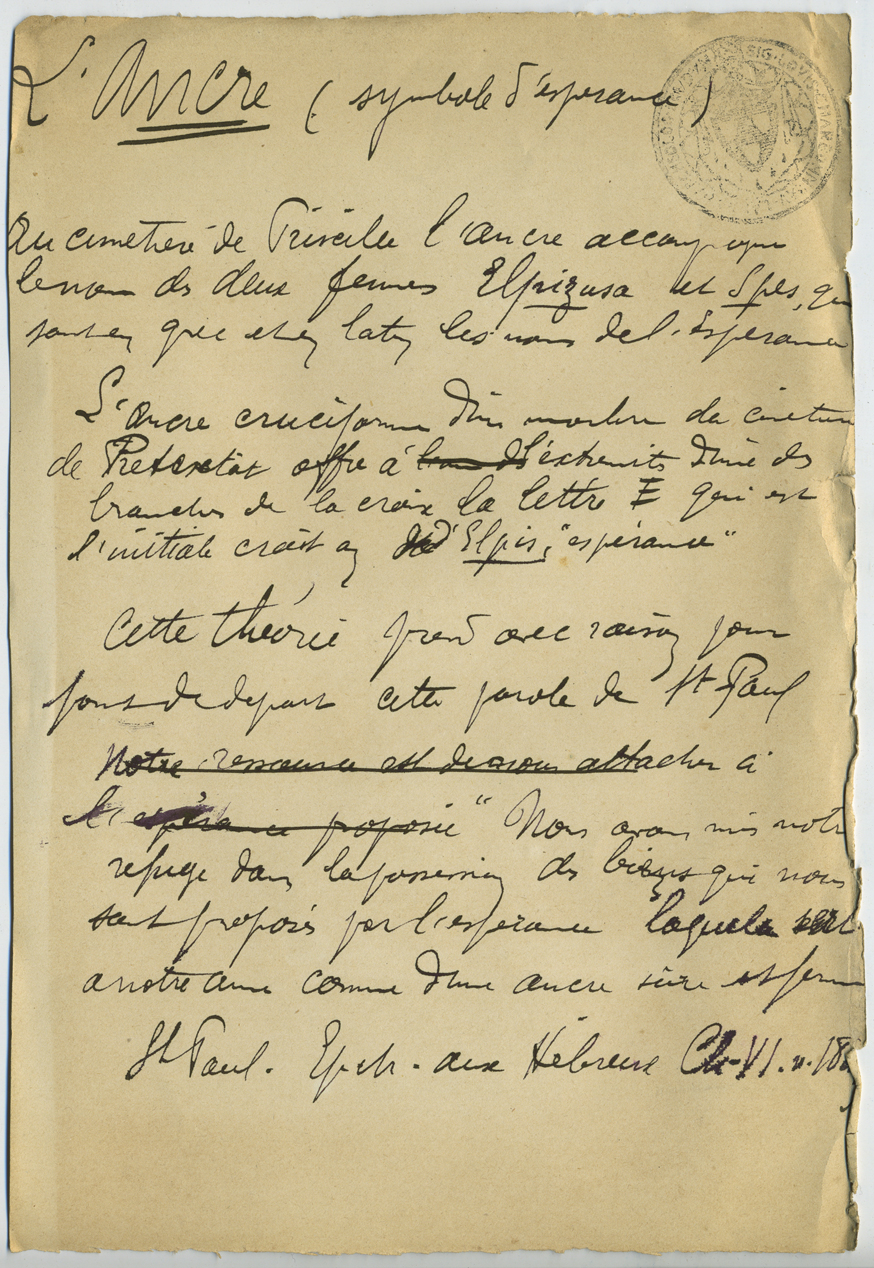 L'Ancre (symbole d'espérance)
SIG. LOUIS CHARB
Au cimetière de Priscille l'ancre accompagne
le nom des deux femmes Elpizusa et Spes, qui
sont en grec et en latin les noms de l'Espérance
L'ancre cruciforme d'un marbre du cimetière
de Pretextat offre à l'extrémité d'une des
branches de la croix la lettre E qui est
l'initiale d'Elpis, "espérance"
Cette théorie prend avec raison pour
point de départ cette parole de St Paul
Notre ressource est de nous attacher à
l'espérance proposée " Nous avons mis notre
refuge dans la possession des biens qui nous
sont proposés par l'espérance laquelle sert
a notre ame comme d'une ancre sûre et ferme
St Paul. Epitr. aux Hébreux Ch. VI. v. 18